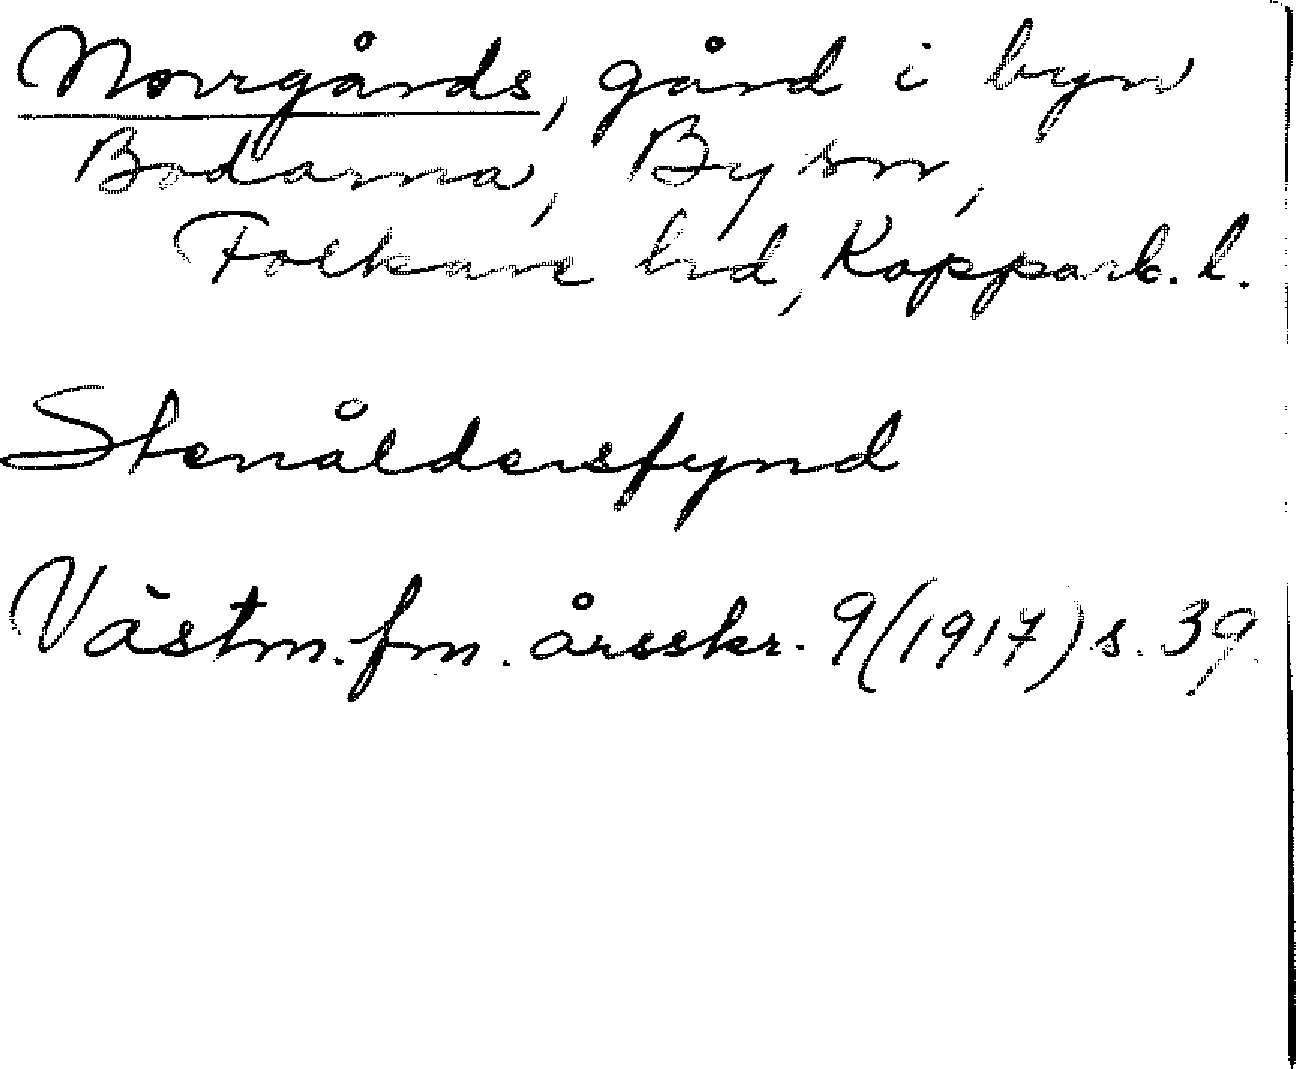 Norrgårds, gård i byn
Bodarna, By sn,
Folkare hd, Kopparb. l.
Stenåldersfynd
Västm. fm. årsskr. 9 (1917) s. 39.